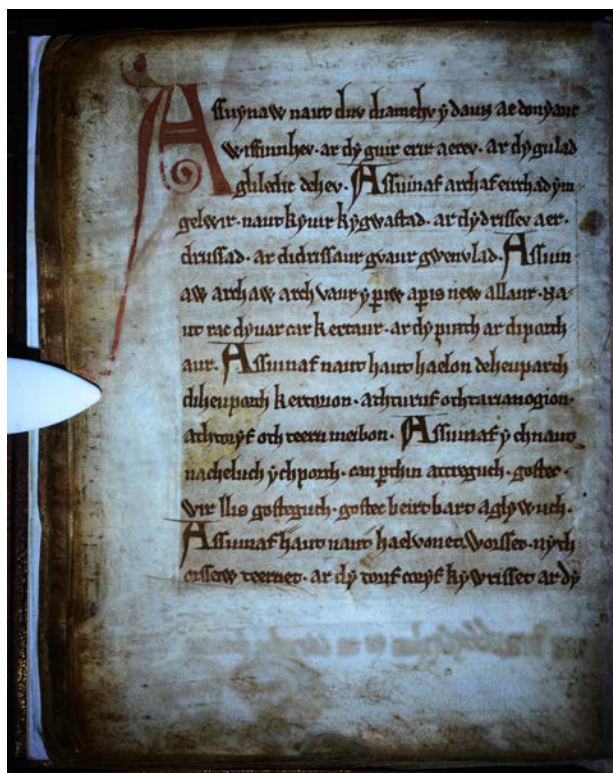 Assuynaw naut duv diamehv ẏ daun ae donẏauc
wiffinnhev. ar dẏ guir erir aerev. ar dẏ gulad
gliledic dehev. Assuinaf archaf eirchad ẏm
gelwir. naut kyuir kẏgwastad. ar dẏ drissev aer
drussad. ar didrissaur gvaur gwenvlad. Assuin
aw archaw arch vaur ẏ periw a peris new allaur. na
ut rac dẏ uar car kertaur. ar dẏ pirth ar diporth
aur. Assuinaf naut haut haelon deheuparth
diheuporth kertorion. ach turuf och tarianogion.
ach torẏf och teern meibon. Assuinaf ẏch naut
nacheluch ẏch porth. can perthin attreguch. gostec
vir llis gosteguch. gostec beirt bart a glẏwuch.
Assuinaf haut naut haelvonet. Worsset. nẏch
orssetv teernet. ar dẏ toruf torẏf kẏwrisset ar dẏ